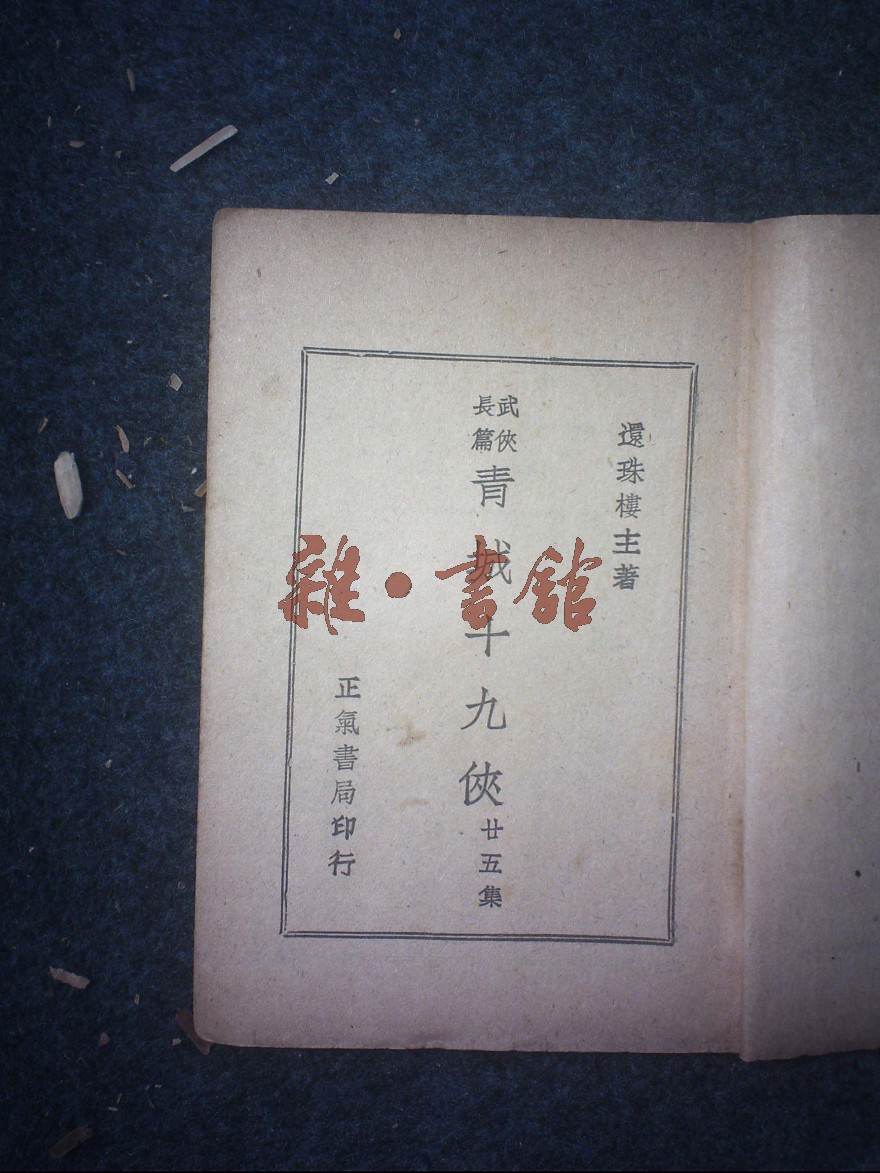 還珠樓主著
武俠
長篇
青城十九俠
廿五集
正氣書局印行
雜·書館